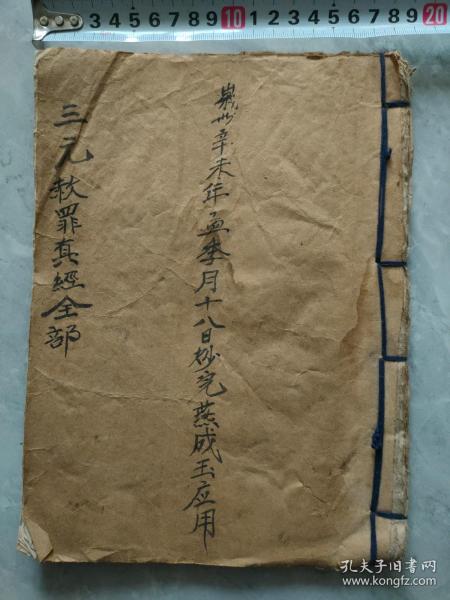 1 2 3 4 5 6 7 8 9 10 1 2 3 4 5 6 7 8 9 20
歲次辛未年孟季月十八日抄完燕成玉应用
三元赦罪真經全部
孔夫子旧书网
www.kongfz.com